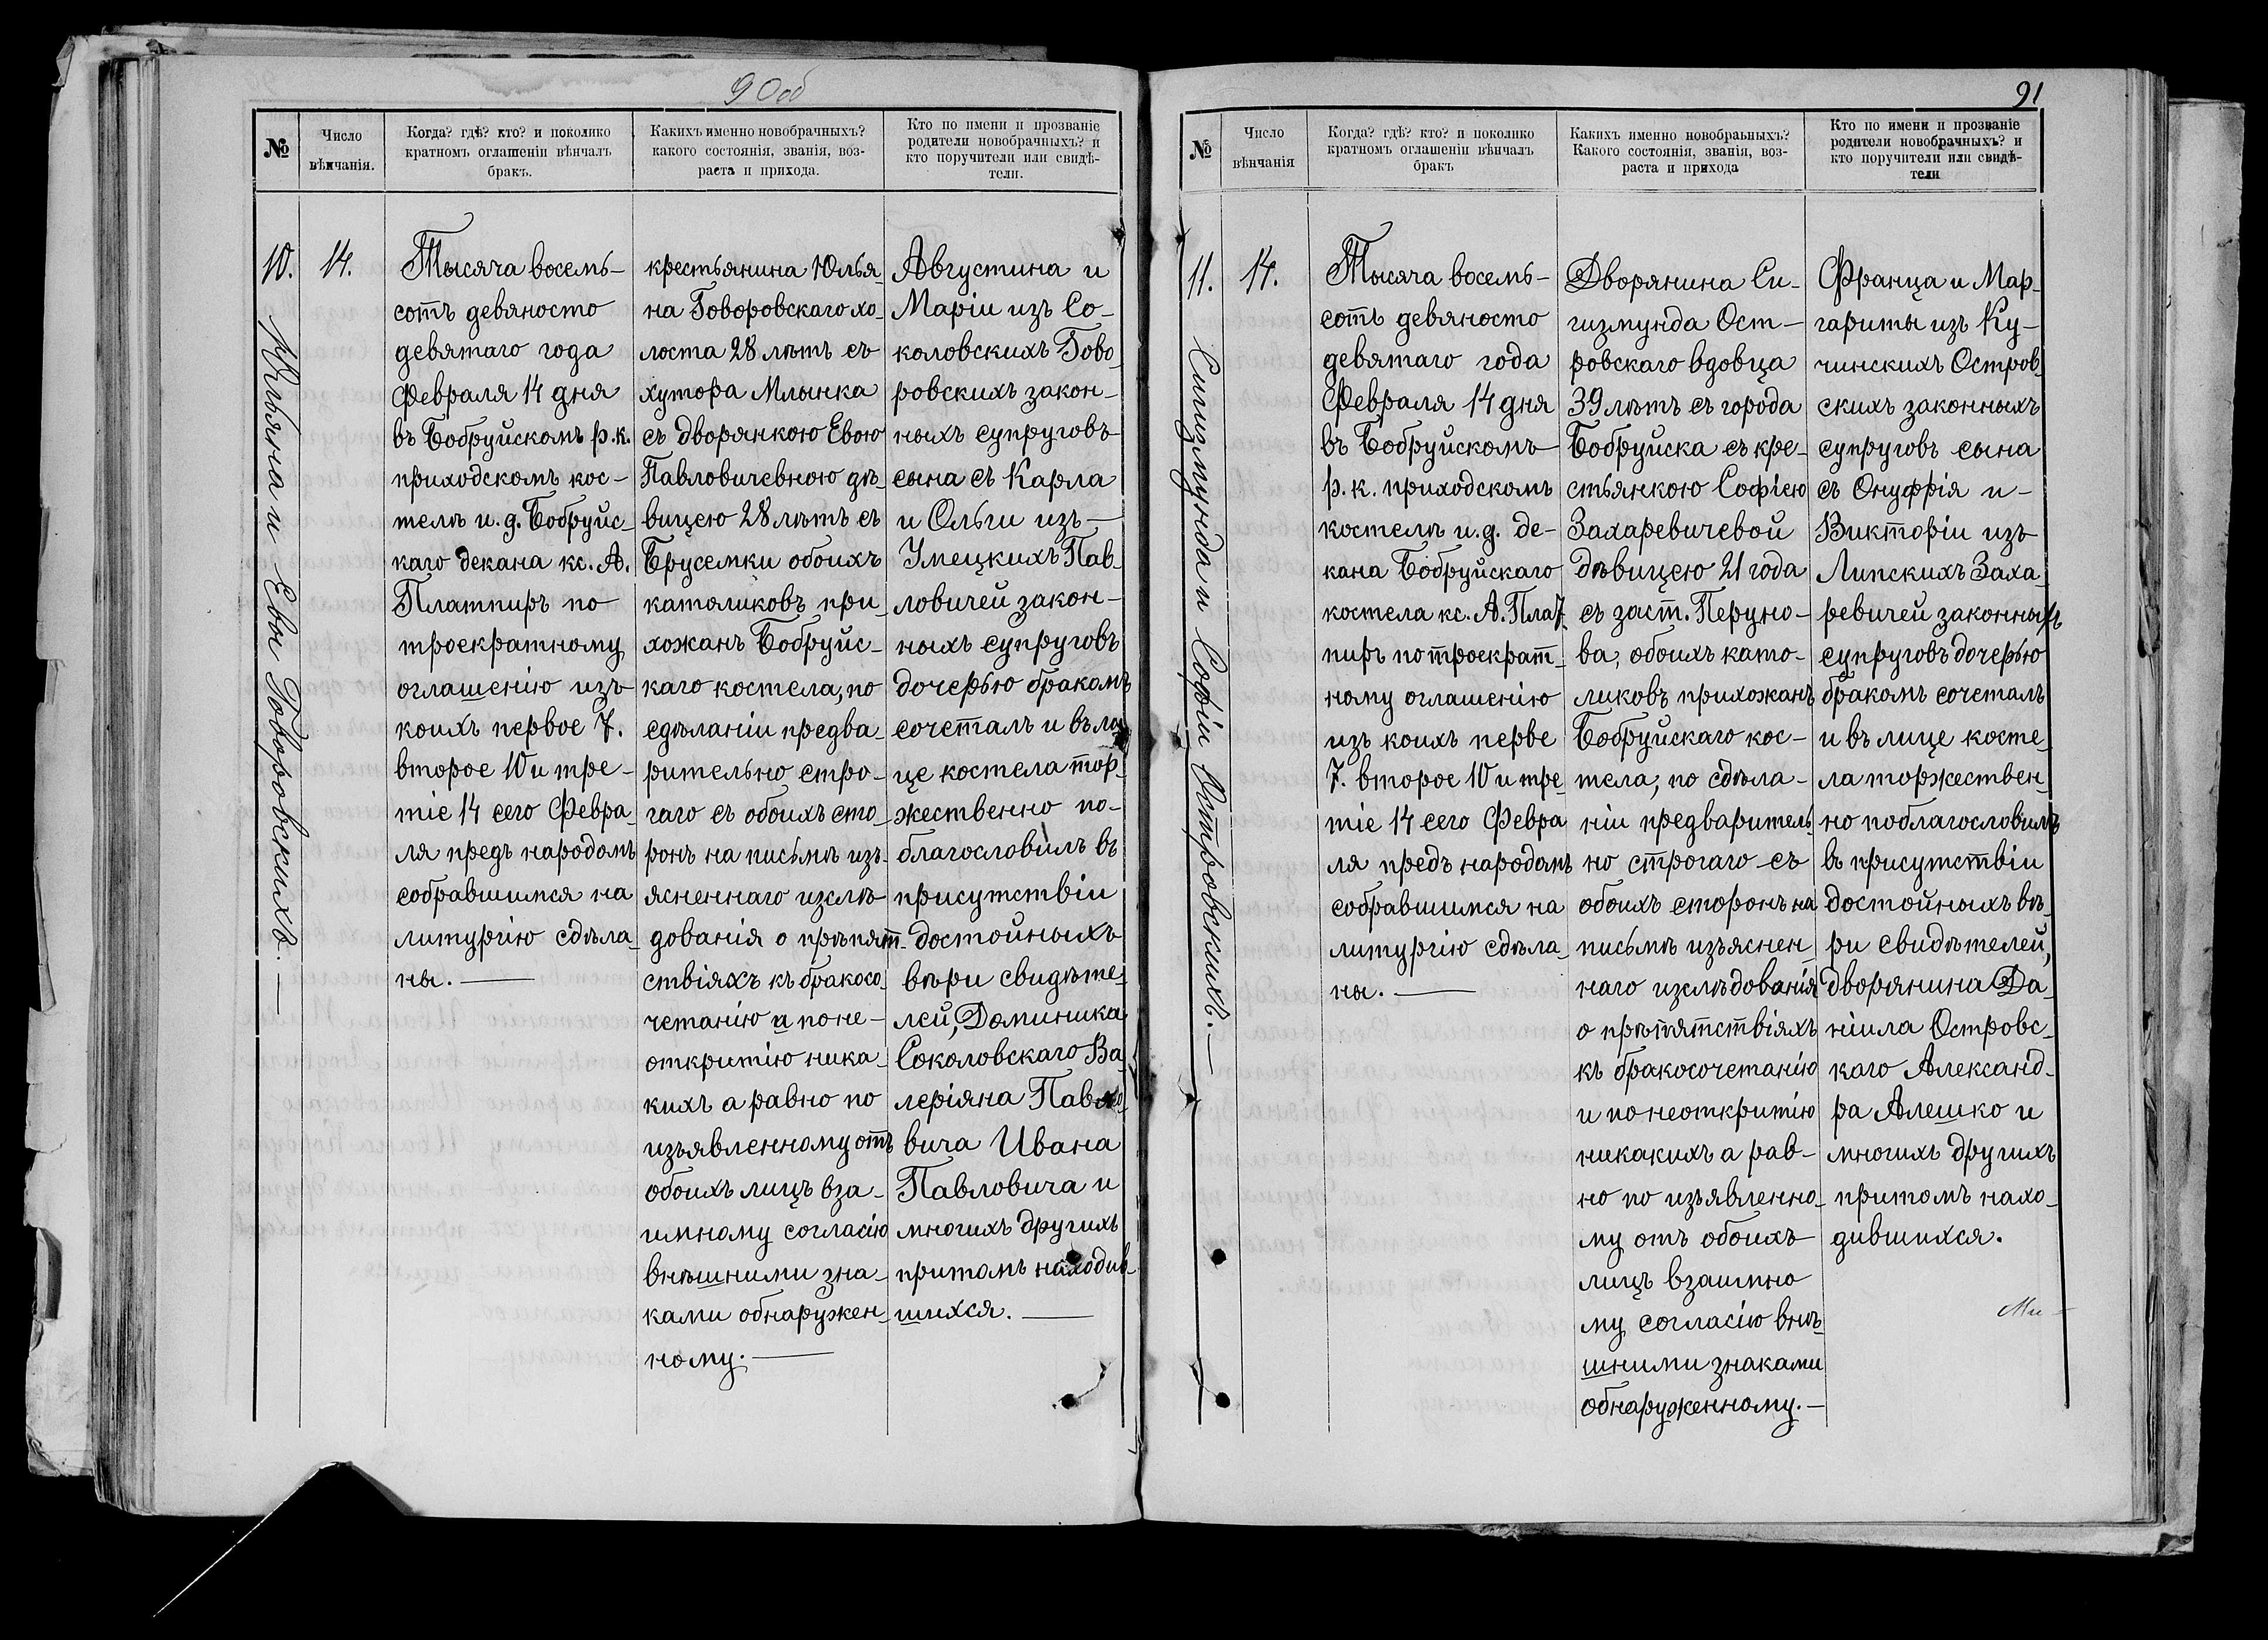 90об
№
Число
вѣнчанія.
Когда? гдѣ? кто? и поколико
кратномъ оглашеніи вѣнчалъ
бракъ.
Какихъ именно новобрачныхъ?
какого состоянія, званія, воз-
раста и прихода.
Кто по имени и прозваніе
родители новобрачныхъ? и
кто поручители или свидѣ-
тели.
10.
14.
Юльяна и Евы Говоровскихъ. —
Тысяча восемь-
сотъ девяносто
девятаго года
Февраля 14 дня
въ Бобруйскомъ р.к.
приходскомъ кос-
телѣ и.д. Бобруйс-
каго декана кс. А.
Платпиръ по
троекратному
оглашенію изъ
коихъ первое 7.
второе 10 и тре-
тіе 14 сего Февра-
ля предъ народомъ
собравшимся на
литургію сдѣла-
ны. —
крестьянина Юлья-
на Говоровскаго хо-
лоста 28 лѣтъ съ
хутора Млынка
съ дворянкою Евою
Павловичевною дѣ-
вицею 28 лѣтъ съ
Брусемки обоихъ
католиковъ при-
хожанъ Бобруйс-
каго костела, по
сдѣланіи предва-
рительно стро-
гаго съ обоихъ сто-
ронъ на письмѣ изъ-
ясненнаго изслѣ-
дованія о прѣпят-
ствіяхъ къ бракосо-
четанію и по не-
откритію ника-
кихъ а равно по
изъявленному отъ
обоихъ лицъ вза-
имному согласію
внѣшними зна-
ками обнаружен-
ному. —
Августина и
Маріи изъ Со-
коловскихъ Гово-
ровскихъ закон-
ныхъ супруговъ
сына съ Карла
и Ольги изъ —
Умецкихъ Пав-
ловичей закон-
ныхъ супруговъ
дочерью бракомъ
сочеталъ и въ ли-
це костела тор-
жественно по-
благословилъ въ
присутствіи
достойныхъ
вѣри свидѣте-
лей, Доминика
Соколовскаго Ва-
леріяна Павло-
вича Ивана
Павловича и
многихъ другихъ
притомъ находив-
шихся. —
91
№
Число
вѣнчанія
Когда? гдѣ? кто? и поколико
кратномъ оглашеніи вѣнчалъ
бракъ
Какихъ именно новобраьныхъ?
Какого состоянія, званія, воз-
раста и прихода
Кто по имени и прозваніе
родители новобрачныхъ? и
кто поручители или свидѣ-
тели
11.
14.
Сигизмунда и Софіи Островскихъ. —
Тысяча восемь-
сотъ девяносто
девятаго года
Февраля 14 дня
въ Бобруйскомъ
р.к. приходскомъ
костелѣ и.д. де-
кана Бобруйскаго
костела кс. А. Плат-
пиръ по троекрат-
ному оглашенію
изъ коихъ перве
7. второе 10 и тре-
тіе 14 сего Февра
ля предъ народомъ
собравшимся на
литургію сдѣла-
ны. —
Дворянина Си-
гизмунда Ост-
ровскаго вдовца
39 лѣтъ съ города
Бобруйска съ кре-
стьянкою Софіею
Захаревичевой
дѣвицею 21 года
съ заст. Перуно-
ва, обоихъ като-
ликовъ прихожанъ
Бобруйскаго кос-
тела, по сдѣла-
ніи предваритель-
но строгаго съ
обоихъ сторонъ на
письмѣ изъяснен-
наго изслѣдованія
о прѣпятствіяхъ
къ бракосочетанію
и по неоткритію
никакихъ а рав-
но по изъявленно-
му отъ обоихъ
лицъ взаимно
му согласію внѣ-
шними знаками
обнаруженному. —
Франца и Мар-
гариты изъ Ку-
чинскихъ Остров-
скихъ законныхъ
супруговъ сына
съ Онуфрія и -
Викторіи изъ
Липскихъ Заха-
ревичей законныхъ
супруговъ дочерью
бракомъ сочеталъ
и въ лице косте-
ла торжествен-
но поблагословилъ
въ присутствіи
достойныхъ вѣ-
ри свидѣтелей,
дворянина Да-
ніила Островс-
каго Александ-
ра Алешко и
многихъ другихъ
притомъ нахо-
дившихся.